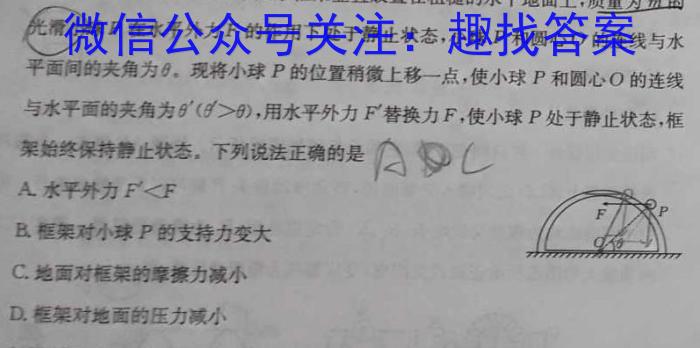 置在粗糙的水平地面上,质量为
微信公众号关注:趣找答案
光滑 在水平外力F的作用下处于静止状态, 和圆心 的连线与水
平面间的夹角为θ。现将小球P的位置稍微上移一点,使小球P和圆心O的连线
与水平面的夹角为θ′(θ′>θ),用水平外力F′替换力F,使小球P处于静止状态,框
架始终保持静止状态。下列说法正确的是
A
C
A. 水平外力F′<F
B. 框架对小球P的支持力变大
C. 地面对框架的摩擦力减小
D. 框架对地面的压力减小
F
P
O
θ